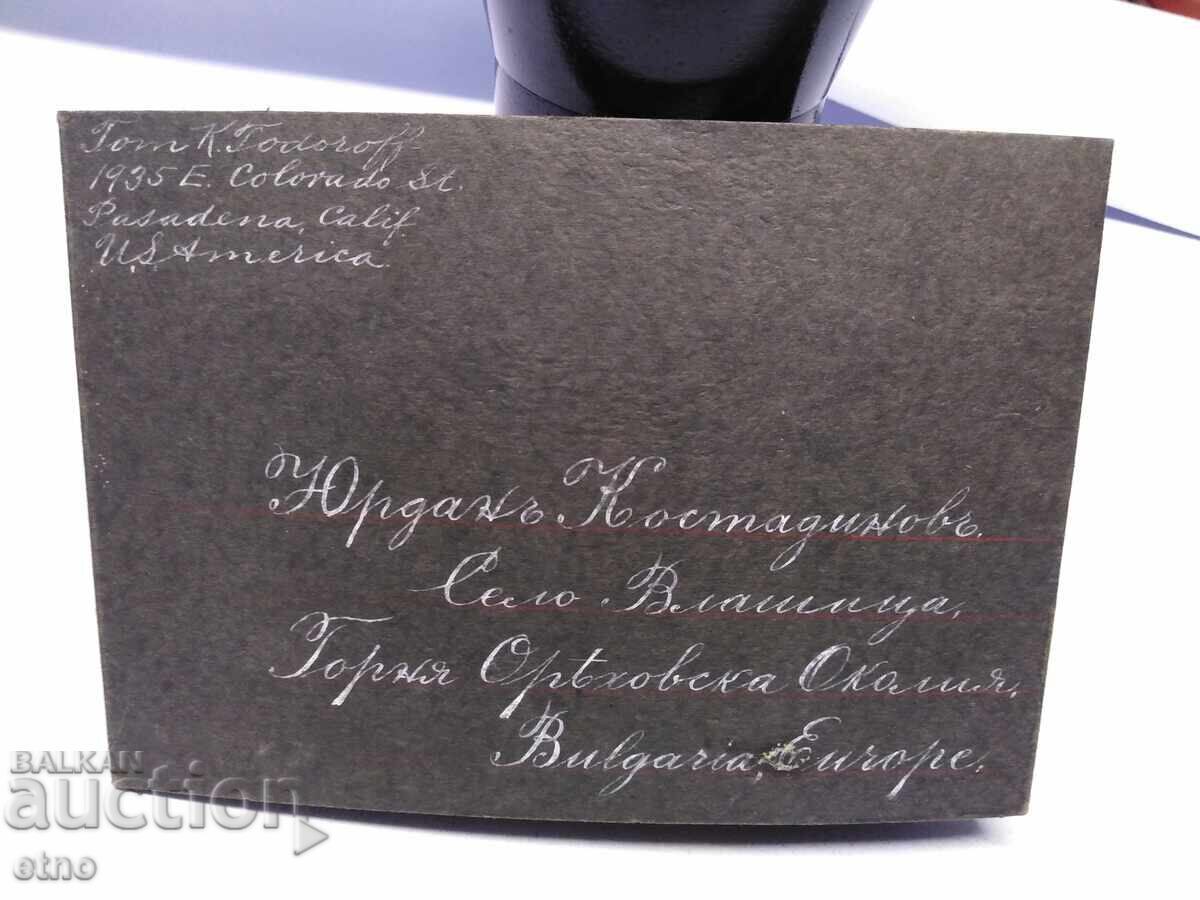 Tom K. Todoroff
1935 E. Colorado St.
Pasadena, Calif
U.S. America
Юрданъ Костадиновъ.
Село Влашица,
Горня Орѣховска Околия,
Bulgaria, Europe.
BALKAN
auction
etno